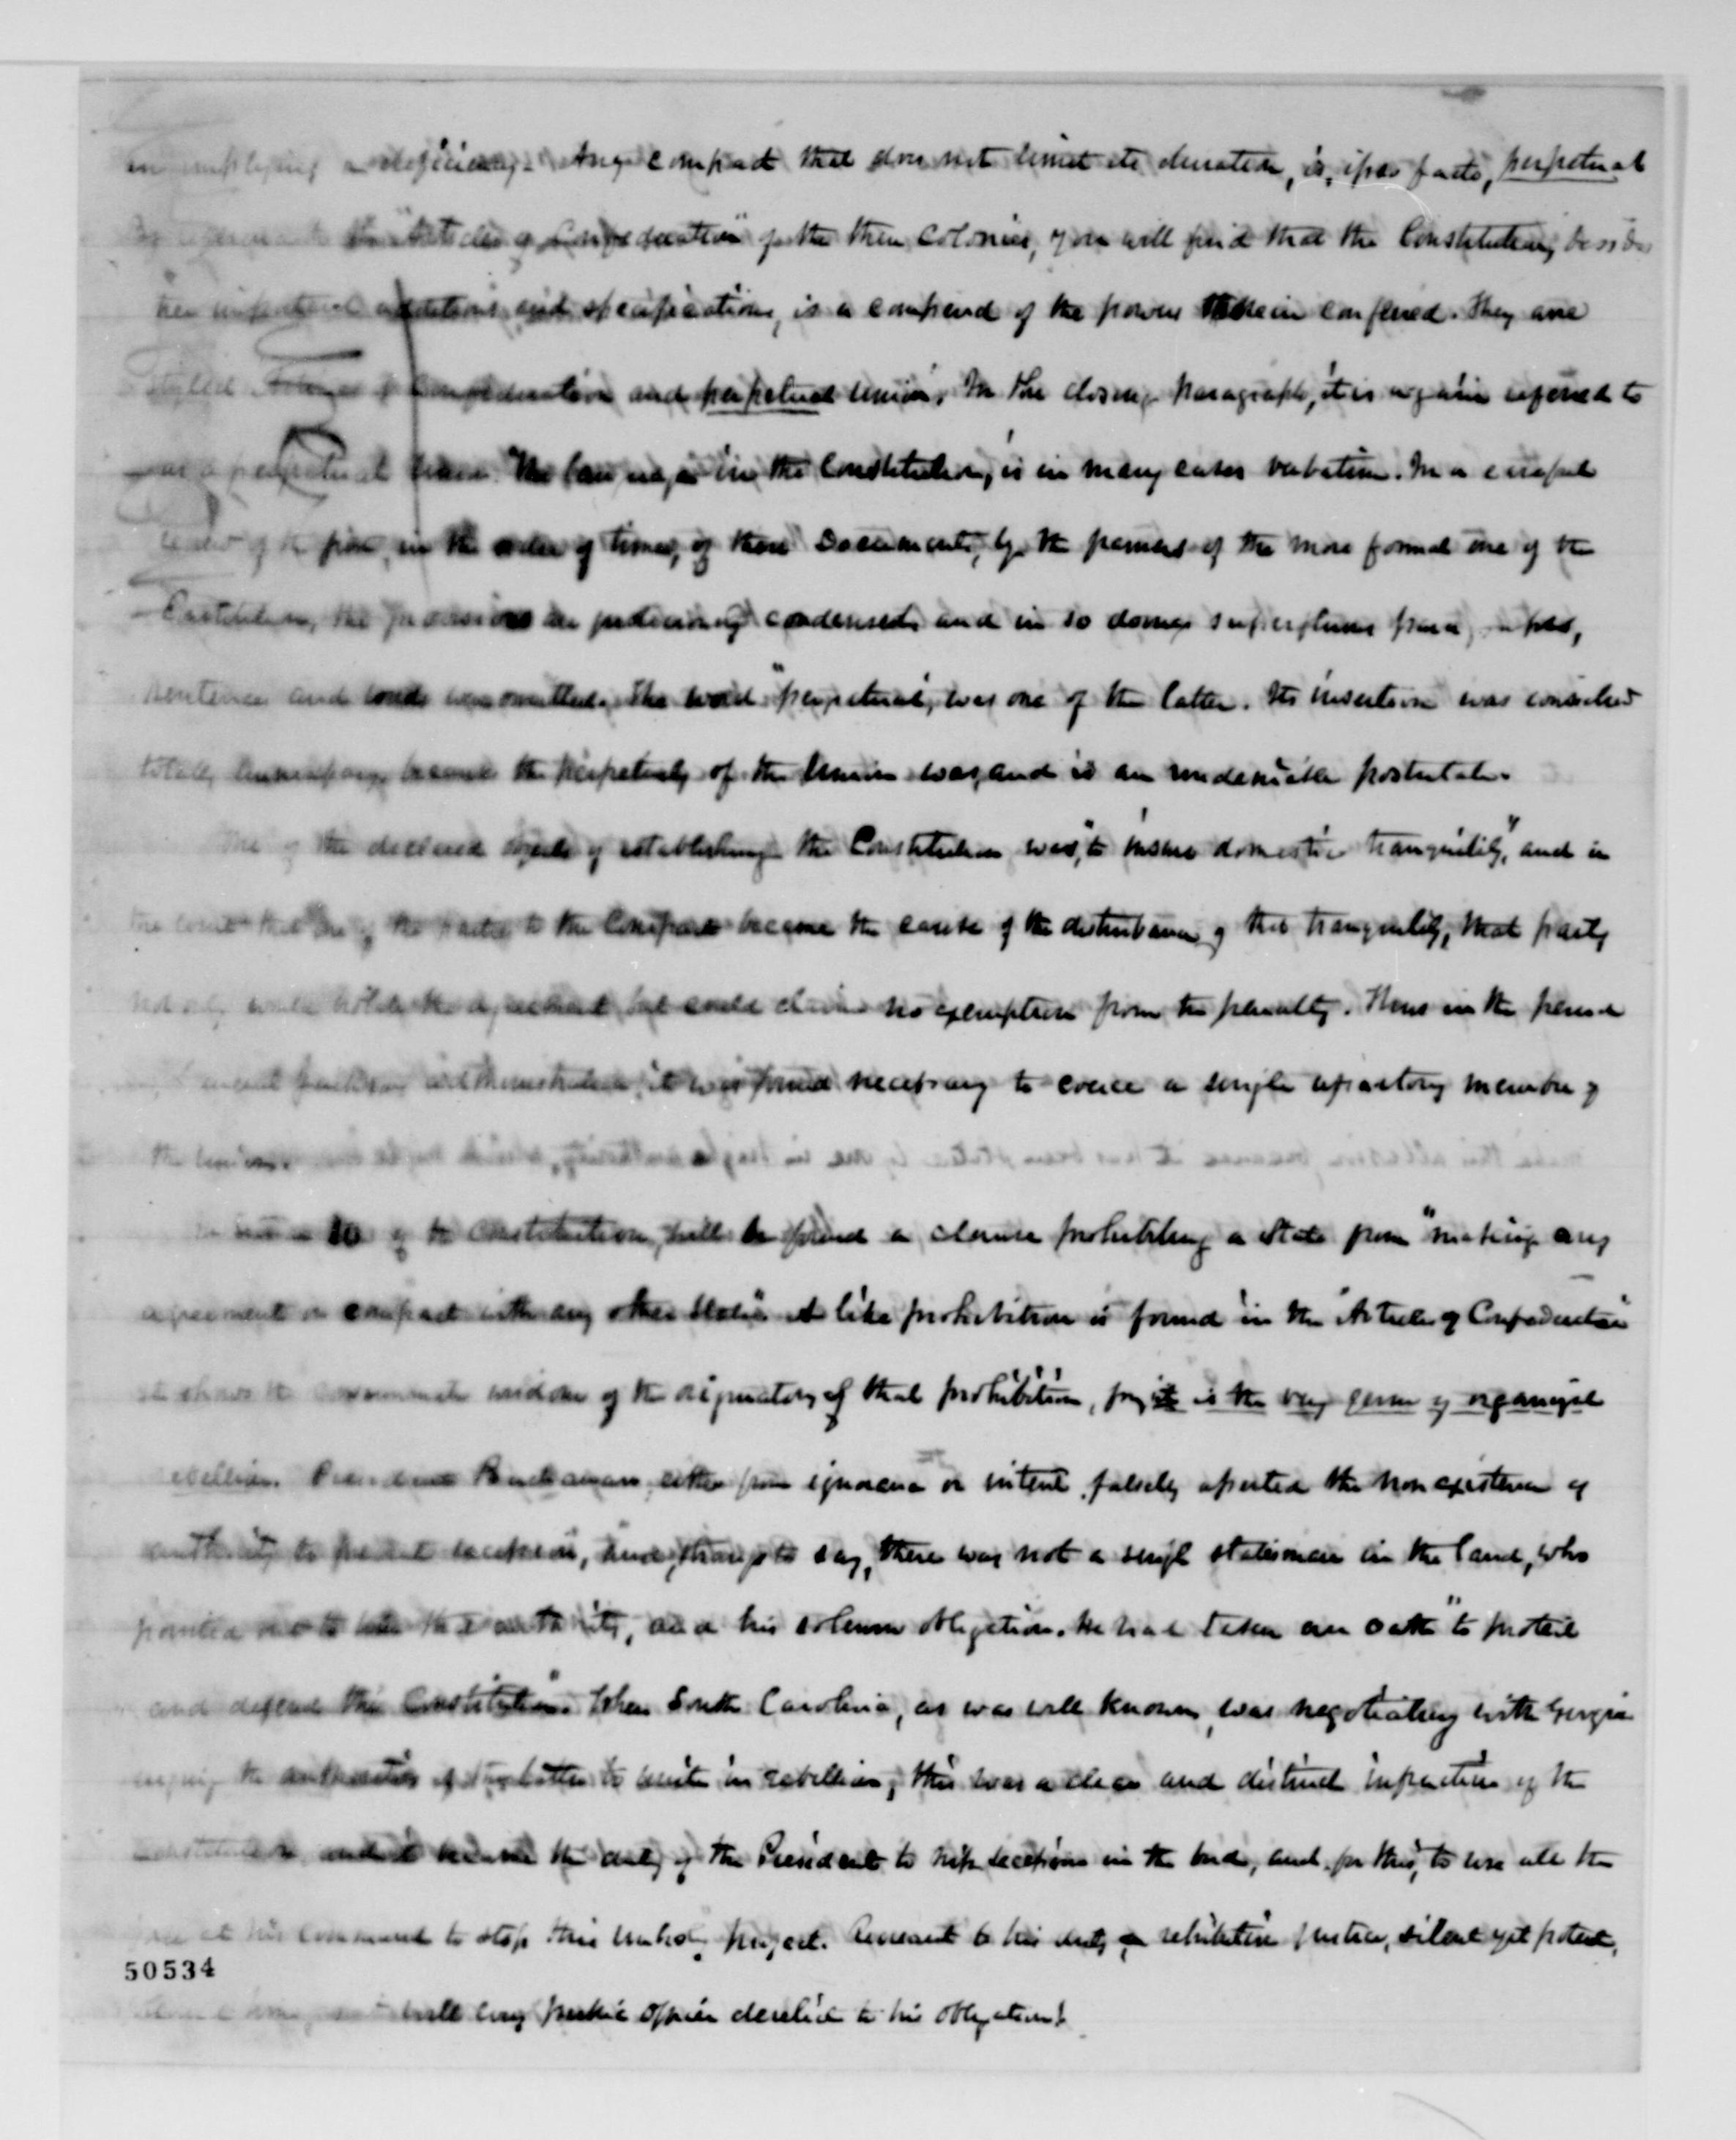 implying a deficiency. Any compact that does not limit its duration, is, ipso facto, perpetual
"Articles of Confederation" of the then Colonies, you will find that the Constitution, besides
additions and specifications, is a compend of the powers therein conferred. They are
styled Articles of Confederation and perpetual union. In the closing paragraph, it is again referred to
as a perpetual union. The language in the Constitution, is in many cases verbatim. In a careful
of the first, in the order of time, of these Documents, by the framers of the more formal one of the
Constitution, the provisions are judiciously condensed, and in so doing superfluous paragraphs,
sentences and words were omitted. The word "perpetual", was one of the latter. Its insertion was considered
totally unnecessary because the perpetuity of the Union was, and is an undeniable postulate.
One of the declared objects of establishing the Constitution was, "to insure domestic tranquility," and in
the event that one of the parties to the Compact became the cause of the disturbance of that tranquility, that party
not only the agreement but could claim no exemption from the penalty. Thus in the
it was found necessary to coerce a single refractory member of
the Union.
10 of the Constitution, will be found a clause prohibiting a State from "making any
agreement or compact with any other State". A like prohibition is found in the "Articles of Confederation"
it shows the consummate wisdom of the signatory of that prohibition, for it is the very germ of organized
rebellion. President Buchanan, either from ignorance or intent, falsely asserted the non existence of
authority to prevent secession, and, strange to say, there was not a single statesman in the land, who
pointed out to him that authority, and his solemn obligation. He had taken an oath "to protect
and defend the Constitution". When South Carolina, as was well known, was negotiating with Georgia
urging the authorities of the latter to unite in rebellion, this was a clear and distinct infraction of the
Constitution and it became the duty of the President to nip secession in the bud, and for this, to use all the
force at his command to stop this unholy project. Recreant to his duty, retributive justice, silent yet potent,
will every public officer derelict to his obligations.
50534